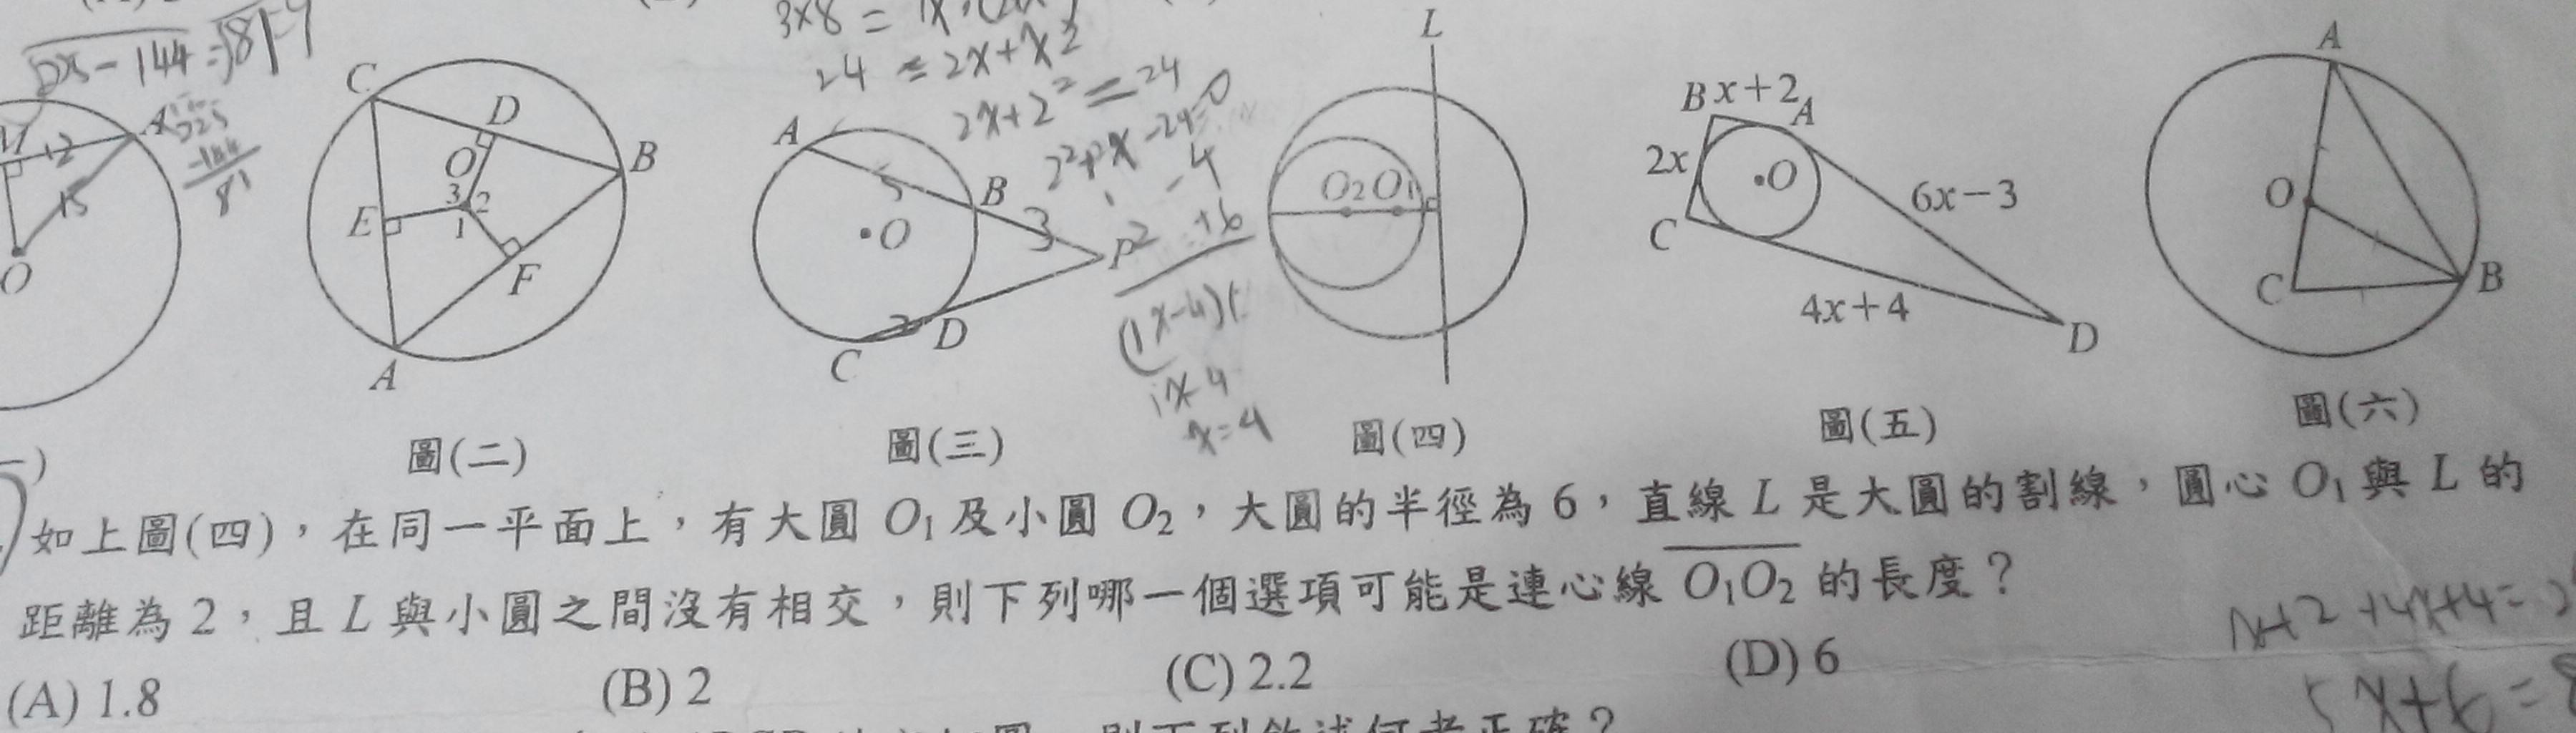 3×8 =
25 - 144 = √81 = 9
24 = 2x + x²
2x + 2² = 24
2² + 2x - 24 = 0
225
-144
81
M 12 A
15
O
C
D
B
O
3 2
1
E
F
A
A
5
B
3
P
O
2
C
D
1 -4
+6
(1x-4)(
1x 4
x = 4
L
O₂ O₁
B x+2 A
2x
O
C
6x-3
4x+4
D
A
O
C
B
圖(二)
圖(三)
圖(四)
圖(五)
圖(六)
如上圖(四),在同一平面上,有大圓 O₁ 及小圓 O₂,大圓的半徑為 6,直線 L 是大圓的割線,圓心 O₁ 與 L 的
距離為 2,且 L 與小圓之間沒有相交,則下列哪一個選項可能是連心線 O₁O₂ 的長度?
x+2+4x+4=2
(A) 1.8 (B) 2 (C) 2.2 (D) 6
5x+6=8